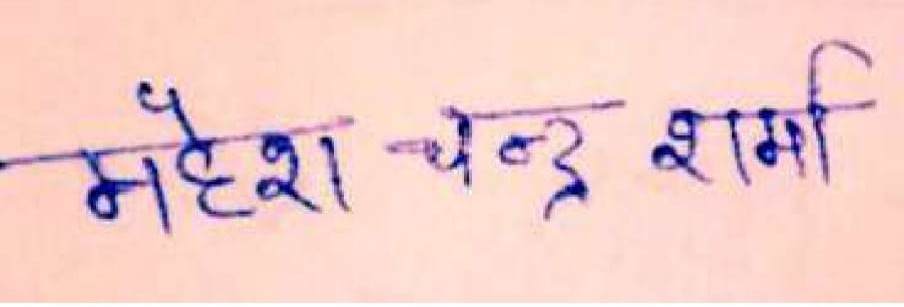 महेश चन्द्र शर्मा